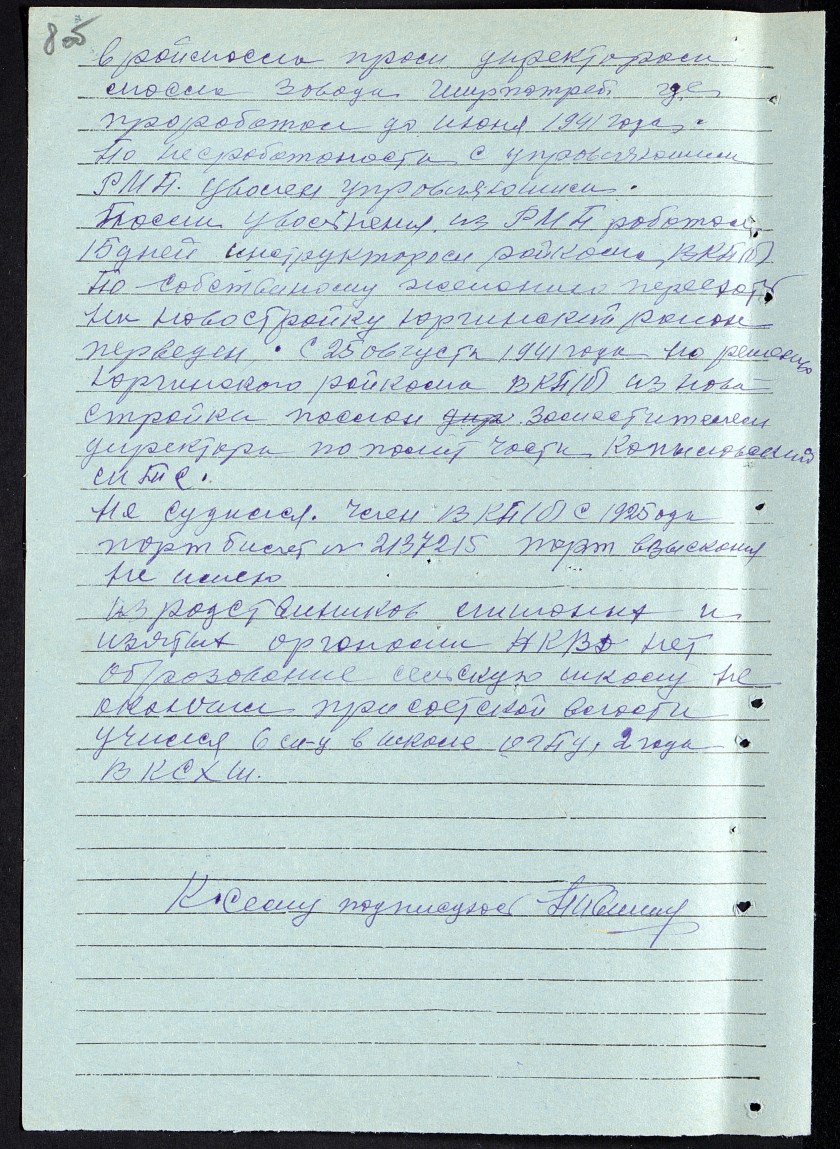 8 об
в раймасло пром директором
масло завода Ширпотреб где
проработал до июня 1941 года.
По несработаности с управляющим
РМП. уволен управляющим.
После увольнения из РМП работал
15 дней инструктором райкома ВКП(б)
По собственому желанию переехать
на новостройку Юргинский район
переведен. С 25 августа 1941 года по решению
Юргинского райкома ВКП(б) из ново
стройки послан дир заместителем
директора по полит части
МТС.
Не судился. Член ВКП(б) с 1925 года
парт билет № 2137215 парт взыскания
не имею
Из родственников и
изятых органами НКВД нет
Образование сельскую школу не
окончил при советской власти
учился 6 м-ц в школе ОГПУ, 2 года
ВКСХШ.
К сему подписуюсь